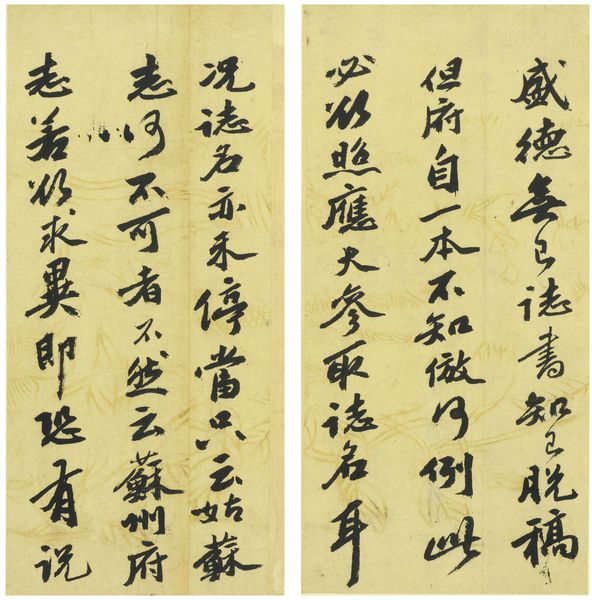 盛德無已誌書知已脫稿
但府自一本不知倣何例此
必欲照應大參取誌名耳
况誌名亦未停當只云姑蘇
志何不可者不然云蘇州府
志若欲求異即恐有说